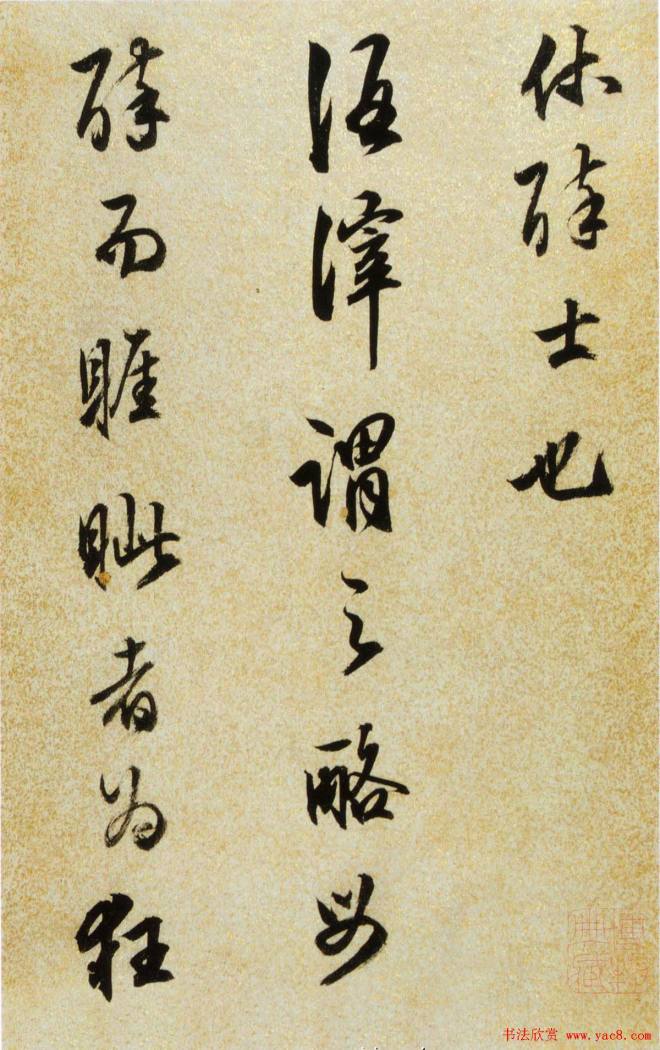 休醉士也
酒滓謂之酪母
醉而睚眦者為狂
书法欣赏 www.yac8.com